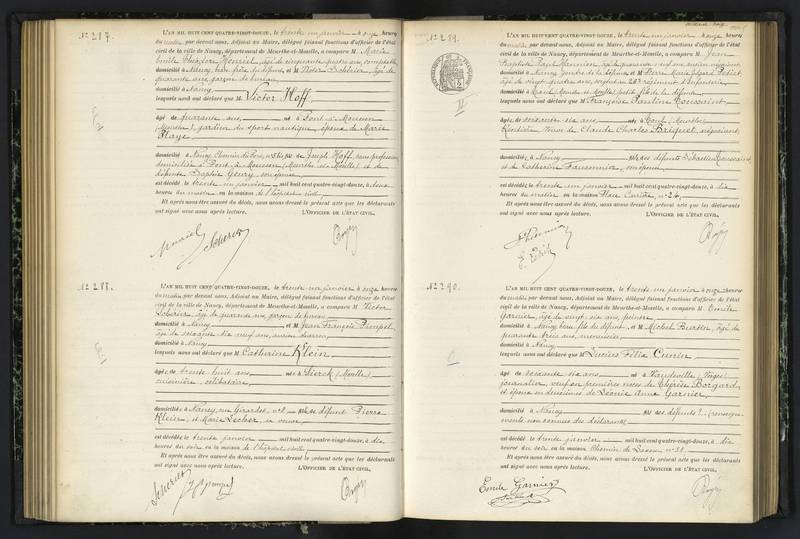 N° 287.
L'AN MIL HUIT CENT QUATRE-VINGT-DOUZE, le trente un janvier à onze heures
du matin, par devant nous, Adjoint au Maire, délégué faisant fonctions d'officier de l'état
civil de la ville de Nancy, département de Meurthe-et-Moselle, a comparu M. Marie
Emile Théodor Henriel, âgé de cinquante quatre ans, comptable
domicilié à Nancy, frère du défunt, et M. Victor Scherier, âgé de
quarante ans, garçon de bureau,
domicilié à Nancy
lesquels nous ont déclaré que M. Victor Hoff,
âgé de quarante ans, né à Pont-à-Mousson
(Meurthe), gardien du sport nautique, époux de Marie
Playe
domicilié à Nancy, de Joseph Hoff, sans profession,
domicilié à Pont-à-Mousson (Meurthe et Moselle) et de
défunte Sophie Geury, son épouse,
est décédé le trente un janvier mil huit cent quatre-vingt-douze, à deux
heures du matin en la maison de l'hôpital civil
Et après nous être assuré du décès, nous avons dressé le présent acte que les déclarants
ont signé avec nous après lecture. L'OFFICIER DE L'ÉTAT CIVIL,
N° 288.
L'AN MIL HUIT CENT QUATRE-VINGT-DOUZE, le trente un janvier à onze heures
du matin, par devant nous, Adjoint au Maire, délégué faisant fonctions d'officier de l'état
civil de la ville de Nancy, département de Meurthe-et-Moselle, a comparu M. Victor
Scherier, âgé de quarante ans, garçon de bureau,
domicilié à Nancy, et M. Jean François Pimpel,
âgé de soixante dix neuf ans, ancien charron,
domicilié à Nancy
lesquels nous ont déclaré que M. Catherine Klein
âgée de trente huit ans, née à Sierck (Moselle)
cuisinière, célibataire,
domiciliée à Nancy, rue Girardet, n° 2 fille de défunt Pierre
Klein, et Marie Lecher, sa veuve
est décédée le trente janvier mil huit cent quatre-vingt-douze, à dix
heures du soir en la maison de l'hôpital civil
Et après nous être assuré du décès, nous avons dressé le présent acte que les déclarants
ont signé avec nous après lecture. L'OFFICIER DE L'ÉTAT CIVIL,
N° 289.
L'AN MIL HUIT CENT QUATRE-VINGT-DOUZE, le trente un janvier à onze heures
du matin, par devant nous, Adjoint au Maire, délégué faisant fonctions d'officier de l'état
civil de la ville de Nancy, département de Meurthe-et-Moselle, a comparu M. Jean
Baptiste Paul âgé de quarante neuf ans, ancien négociant
domicilié à Nancy gendre de la défunte, et Pierre Marie Edgard Petiet
âgé de vingt quatre ans, sergent au régiment d'Infanterie
domicilié à Toul (Meurthe et Moselle) petit fils de la défunte
lesquels nous ont déclaré que M. Françoise Pauline Toussaint,
âgée de soixante six ans, née à Toul (Meurthe)
Rentière, Veuve de Claude Charles Briquel, négociant,
domiciliée à Nancy fille des défunts Sébastien Toussaint,
et de Catherine Fauconnier, son épouse
est décédée le trente un janvier mil huit cent quatre-vingt-douze, à dix
heures du matin en la maison Place Carrière, n° 24,
Et après nous être assuré du décès, nous avons dressé le présent acte que les déclarants
ont signé avec nous après lecture. L'OFFICIER DE L'ÉTAT CIVIL,
N° 290.
L'AN MIL HUIT CENT QUATRE-VINGT-DOUZE, le trente un janvier à onze heures
du matin, par devant nous, Adjoint au Maire, délégué faisant fonctions d'officier de l'état
civil de la ville de Nancy, département de Meurthe-et-Moselle, a comparu M. Emile
Garnier, âgé de vingt six ans, peintre
domicilié à Nancy, beau fils du défunt, et Michel Burtin, âgé de
quarante trois ans, menuisier,
domicilié à Nancy
lesquels nous ont déclaré que M. Lucien Félix Cunin
âgé de soixante six ans, né à Vaudeville (Vosges)
journalier, veuf en premières noces de Thérèse Borgard,
et époux en deuxièmes de Léonie Anne Garnier,
domicilié à Nancy fils des défunts ? (renseigne-
ments non connus des déclarants)
est décédé le trente janvier mil huit cent quatre-vingt-douze, à dix
heures du soir en la maison Chemin de n° 31.
Et après nous être assuré du décès, nous avons dressé le présent acte que les déclarants
ont signé avec nous après lecture. L'OFFICIER DE L'ÉTAT CIVIL,
Emile Garnier